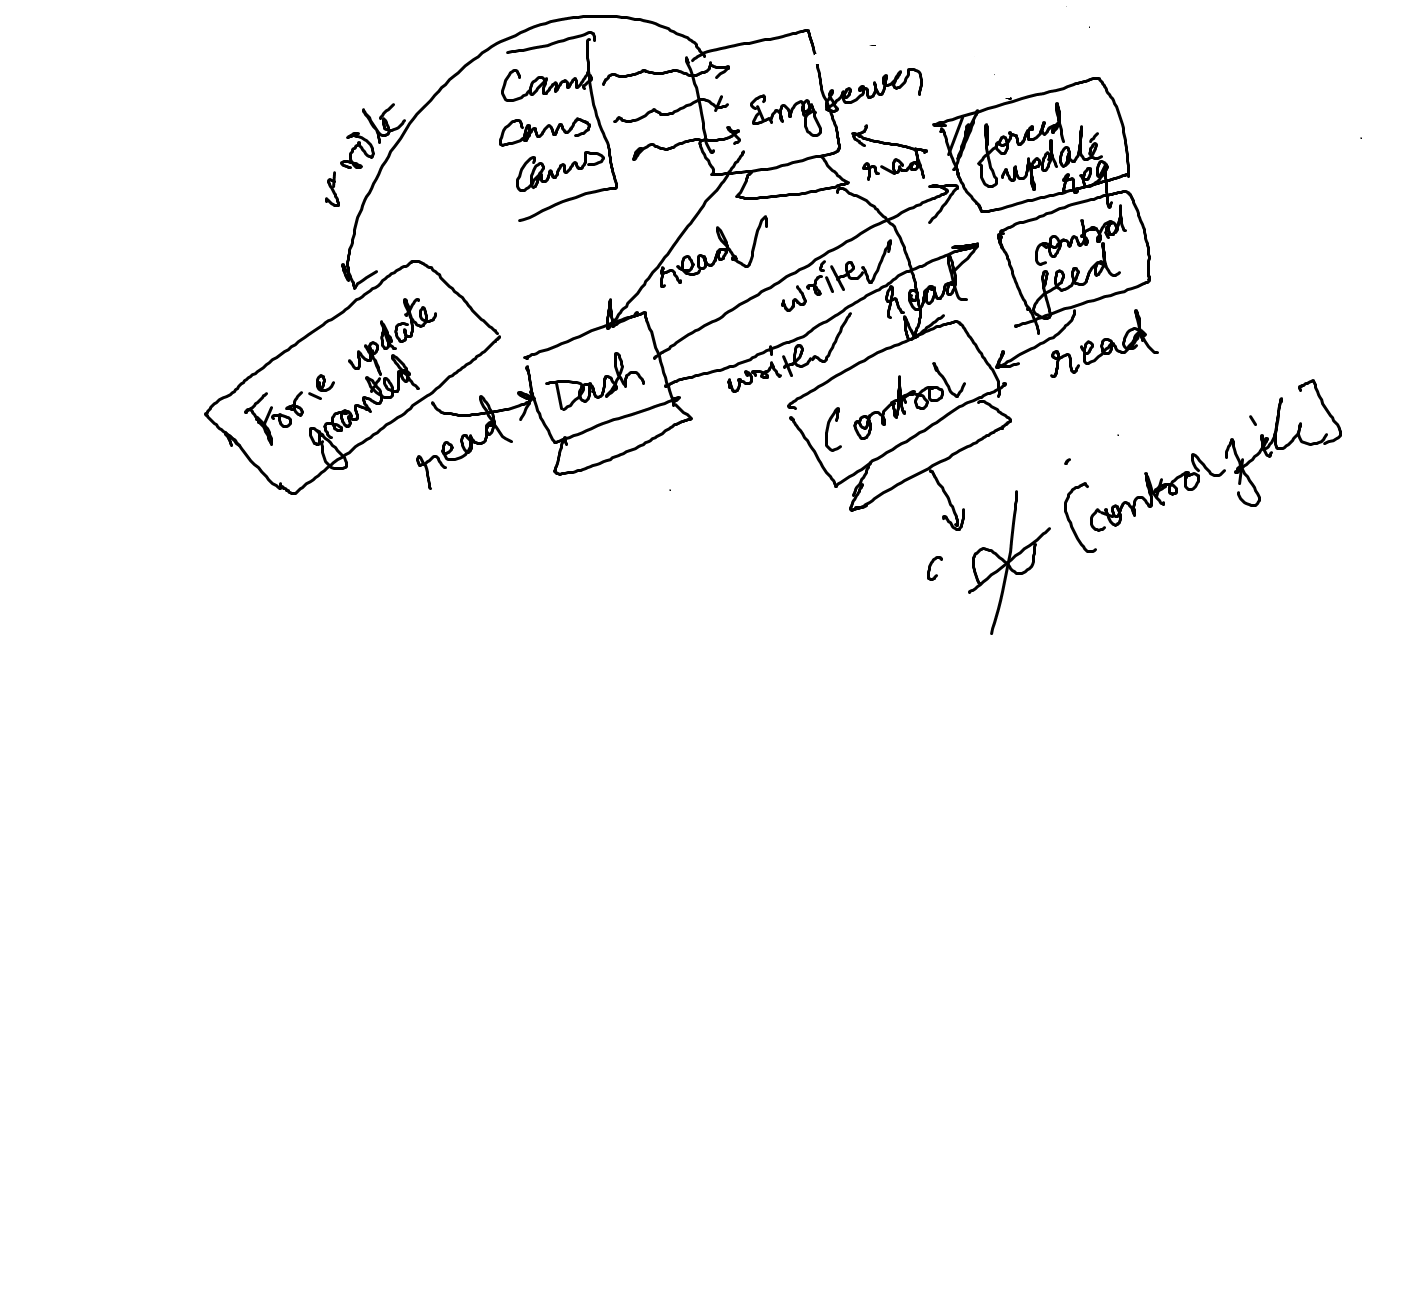 Cams
Cams
Cams
Img server
write
forced
update
req
read
control
feed
read
write
read
write
read
Force update
granted
Dash
Control
read
[control files]